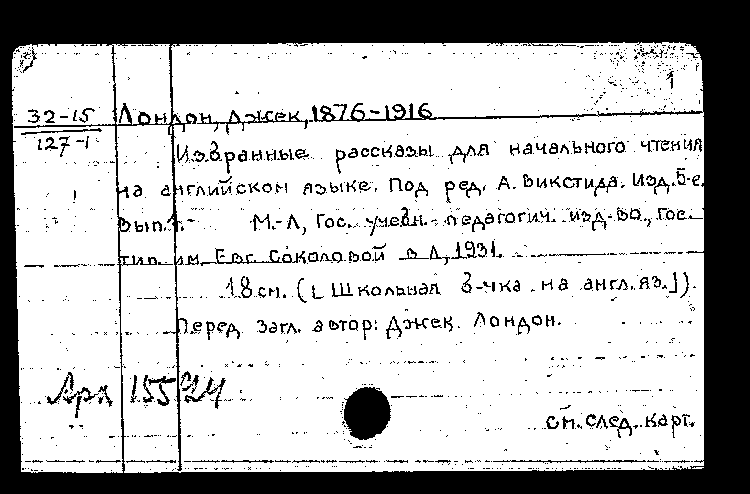 1
32-15 Лондон, Джек, 1876-1916
127-1
Избранные рассказы для начального чтения
на английском языке. Под ред. А. Викстида. Изд. 5-е.
Вып. 1.- М.-Л, Гос. учебн. педагогич. изд-во, Гос.
тип. им. Евг. Соколовой в Л, 1931.
18 см. ([Школьная б-чка на англ. яз.]).
Перед загл. автор: Джек Лондон.
Арх 155 24
см. след. карт.